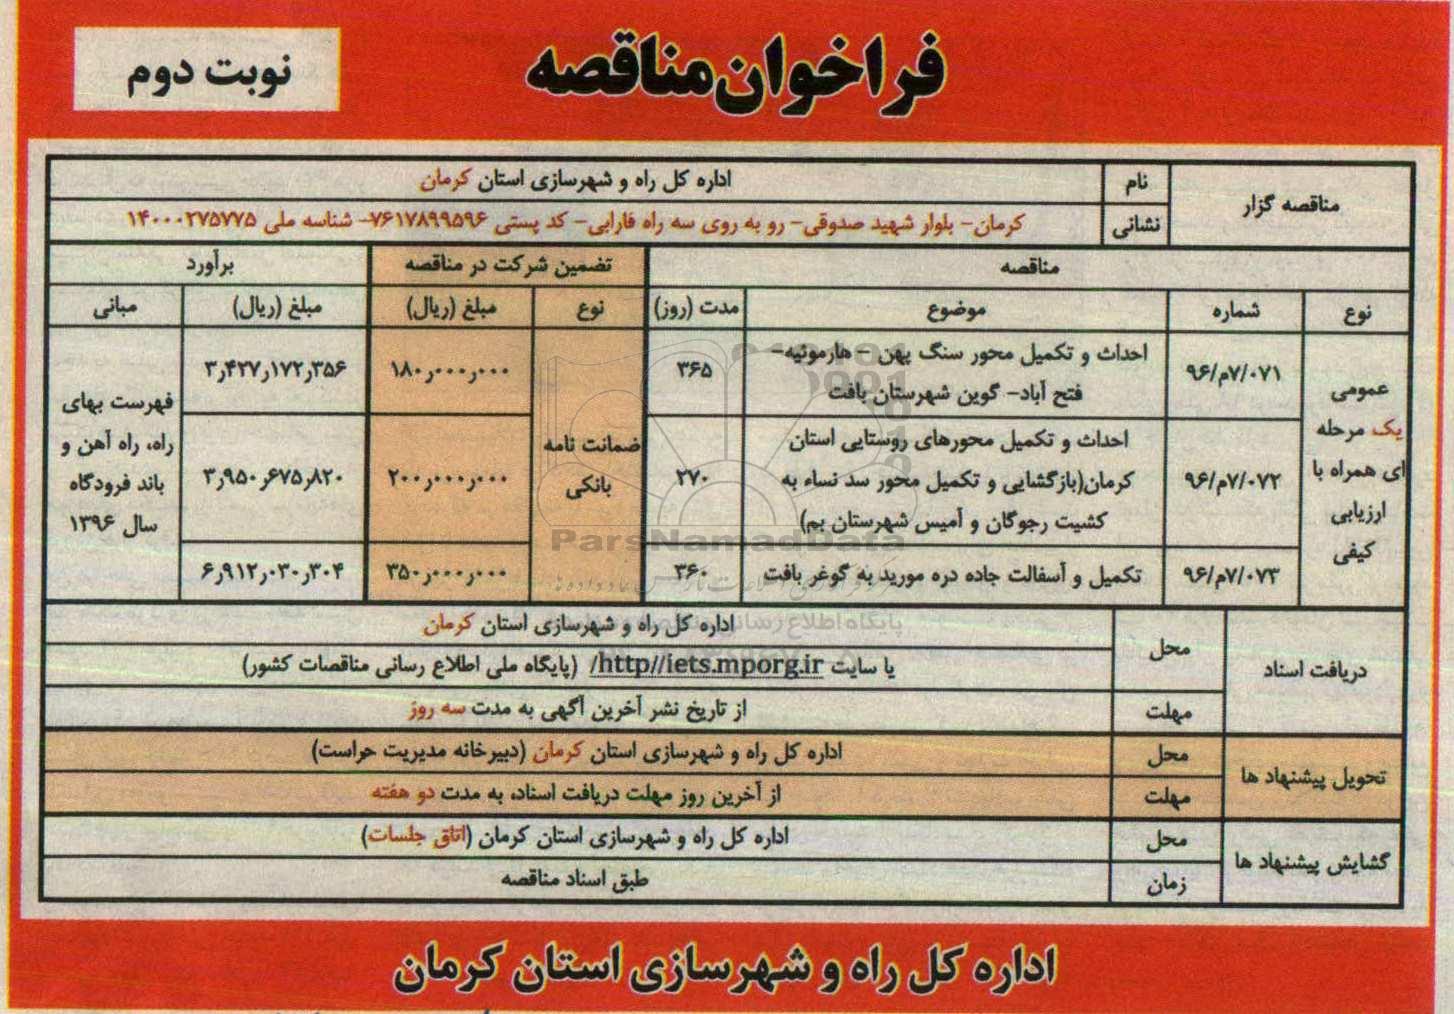 فراخوان مناقصه
نوبت دوم
مناقصه گزار
نام
اداره کل راه و شهرسازی استان کرمان
نشانی
کرمان- بلوار شهید صدوقی- رو به روی سه راه فارابی- کد پستی ۷۶۱۷۸۹۹۵۹۶- شناسه ملی ۱۴۰۰۰۲۷۵۷۷۵
مناقصه
تضمین شرکت در مناقصه
برآورد
نوع
شماره
موضوع
مدت (روز)
نوع
مبلغ (ریال)
مبلغ (ریال)
مبانی
عمومی
یک مرحله
ای همراه با
ارزیابی
کیفی
۹۶/م۷/۰۷۱
احداث و تکمیل محور سنگ پهن - هارمونیه-
فتح آباد- گوین شهرستان بافت
۳۶۵
ضمانت نامه
بانکی
۱۸۰٫۰۰۰٫۰۰۰
۳٫۴۲۷٫۱۷۲٫۳۵۶
فهرست بهای
راه، راه آهن و
باند فرودگاه
سال ۱۳۹۶
۹۶/م۷/۰۷۲
احداث و تکمیل محورهای روستایی استان
کرمان(بازگشایی و تکمیل محور سد نساء به
کشیت رجوگان و آمیس شهرستان بم)
۲۷۰
۲۰۰٫۰۰۰٫۰۰۰
۳٫۹۵۰٫۶۷۵٫۸۲۰
۹۶/م۷/۰۷۳
تکمیل و آسفالت جاده دره مورید به گوغر بافت
۳۶۰
۳۵۰٫۰۰۰٫۰۰۰
۶٫۹۱۲٫۰۳۰٫۳۰۴
ParsNamadData
دریافت اسناد
محل
اداره کل راه و شهرسازی استان کرمان
یا سایت http//iets.mporg.ir/ (پایگاه ملی اطلاع رسانی مناقصات کشور)
مهلت
از تاریخ نشر آخرین آگهی به مدت سه روز
تحویل پیشنهاد ها
محل
اداره کل راه و شهرسازی استان کرمان (دبیرخانه مدیریت حراست)
مهلت
از آخرین روز مهلت دریافت اسناد، به مدت دو هفته
گشایش پیشنهاد ها
محل
اداره کل راه و شهرسازی استان کرمان (اتاق جلسات)
زمان
طبق اسناد مناقصه
اداره کل راه و شهرسازی استان کرمان